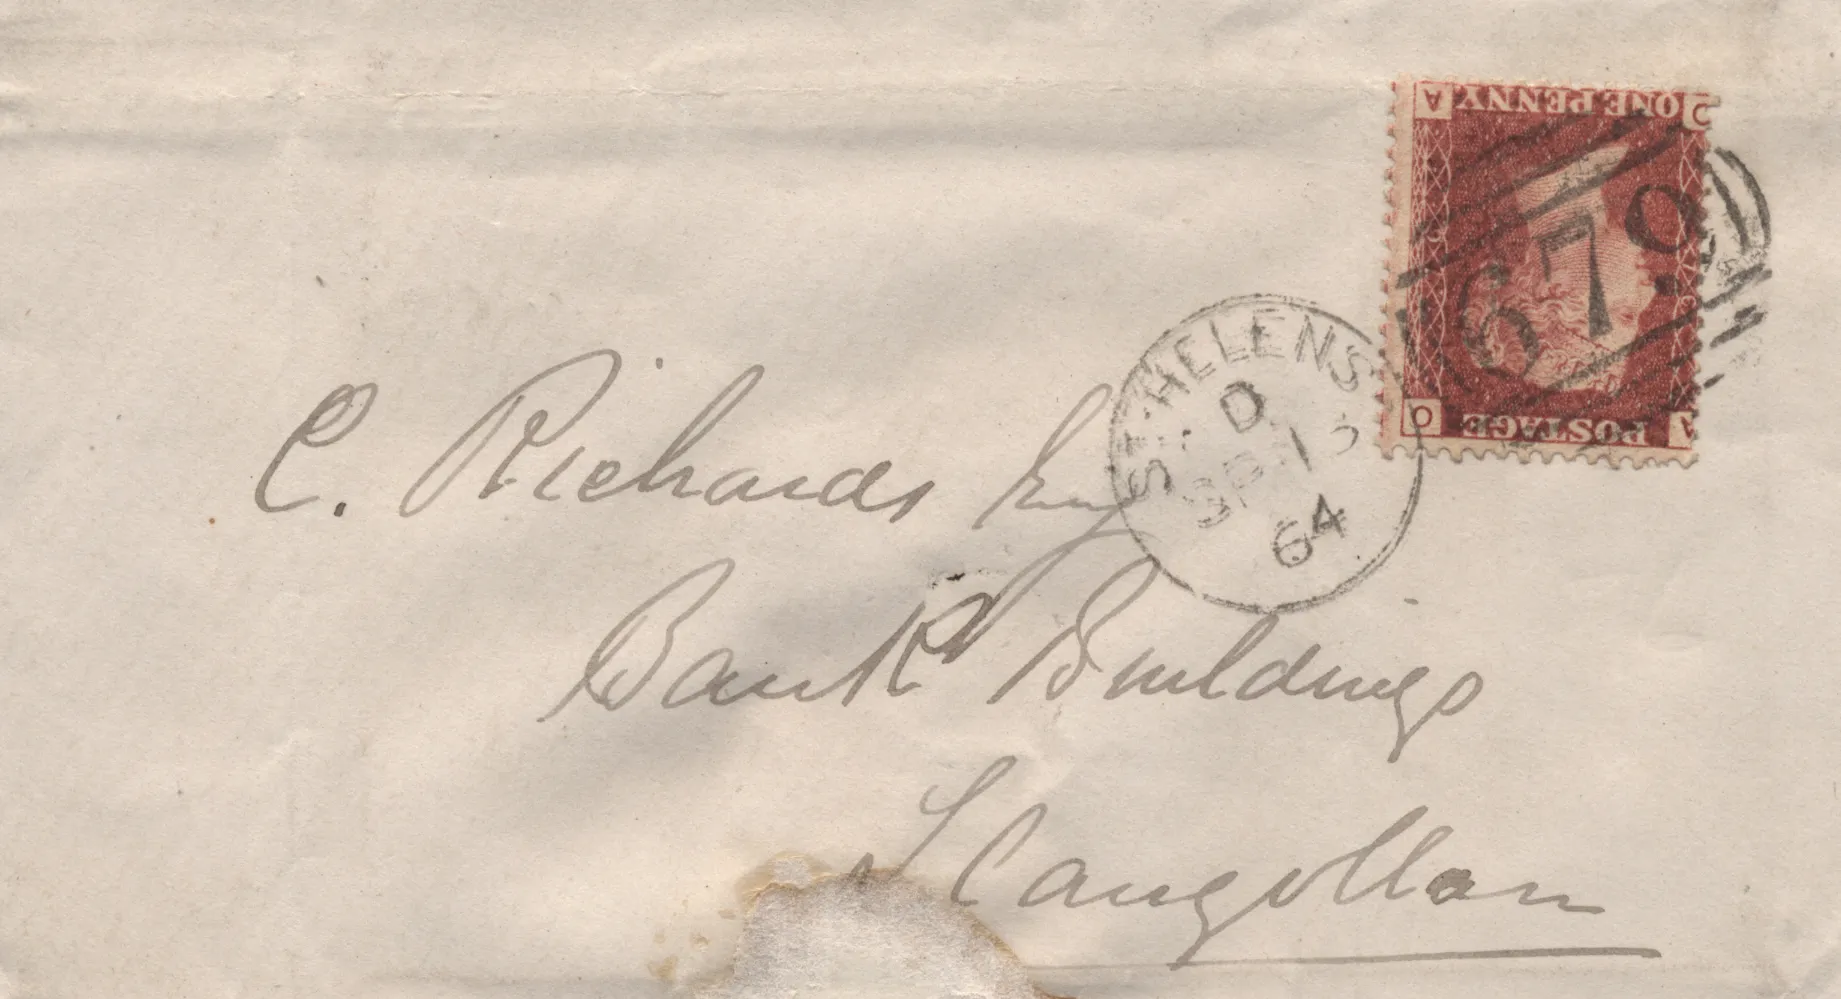 A ONE PENNY C
679
C POSTAGE A
ST. HELENS
D
SP 13
64
C. Richards Esq
Bank Buildings
Llangollen